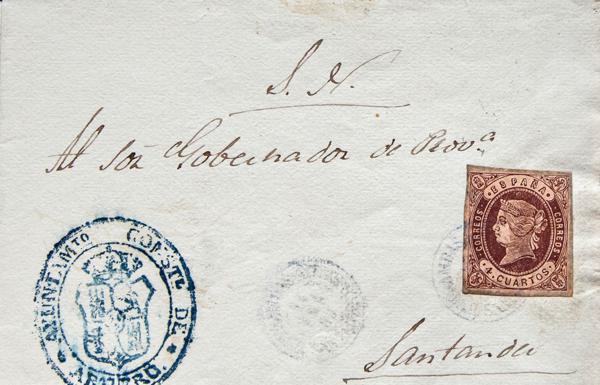 S. N.
Al Sór Gobernador de Provª
ESPAÑA
CORREOS
CORREOS
4 CUARTOS
AYUNTAMTO CONSTL DE
Santander